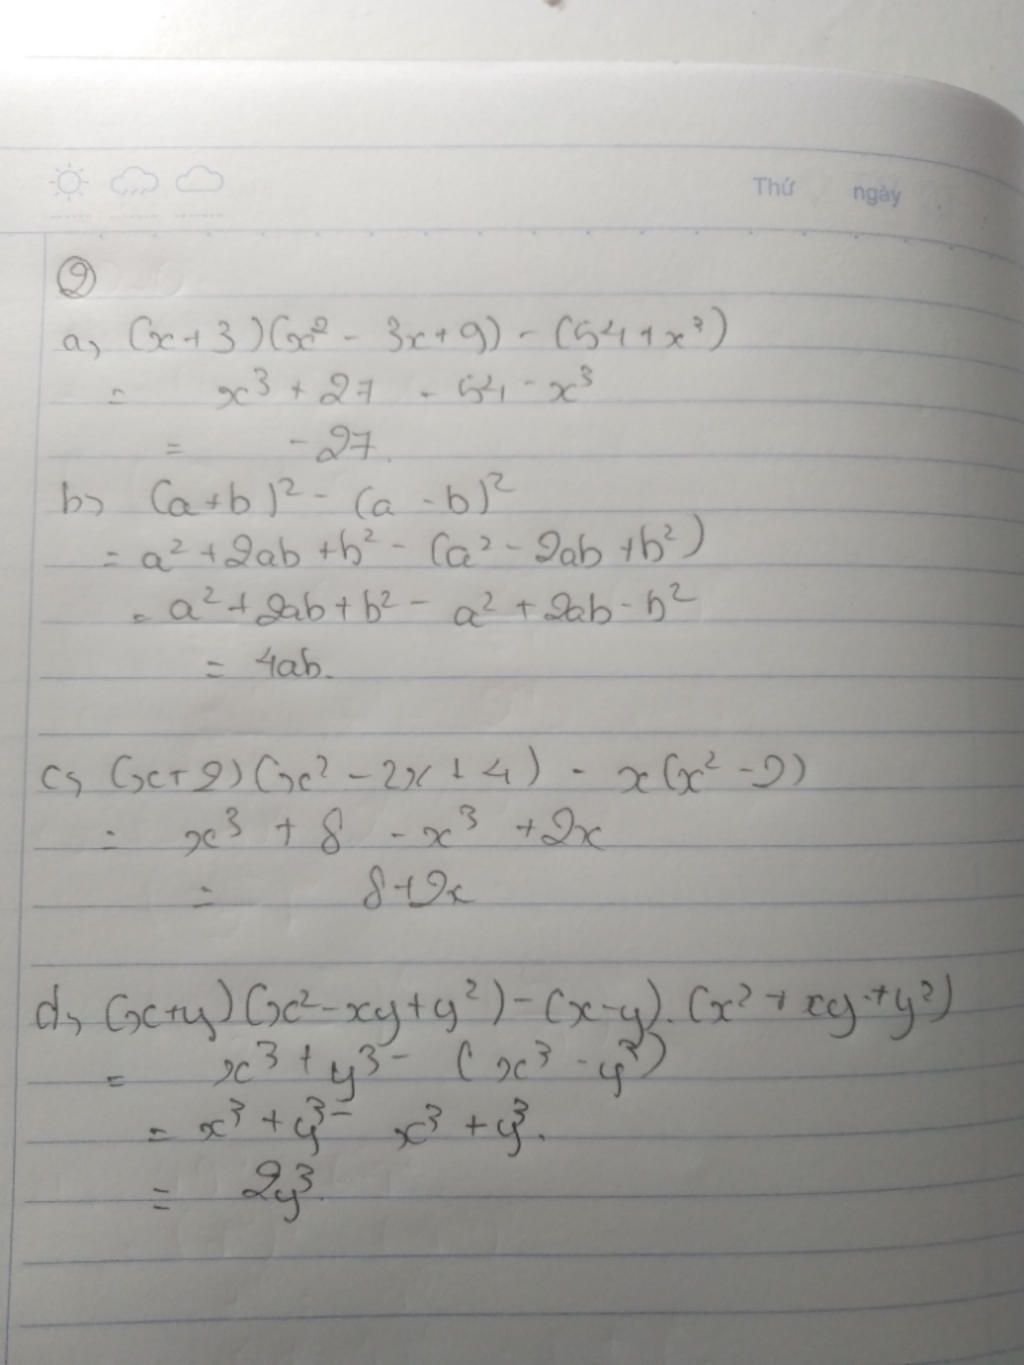 Thứ ngày
②
a, (x+3)(x² - 3x+9) - (54+x³)
= x³ + 27 - 54 - x³
= -27.
b, (a+b)² - (a-b)²
= a² + 2ab + b² - (a² - 2ab + b²)
= a² + 2ab + b² - a² + 2ab - b²
= 4ab.
c, (x+2)(x² - 2x + 4) - x(x² - 2)
= x³ + 8 - x³ + 2x
= 8+2x
d, (x+y)(x² - xy + y²) - (x-y).(x² + xy + y²)
= x³ + y³ - (x³ - y³)
= x³ + y³ - x³ + y³.
= 2y³.